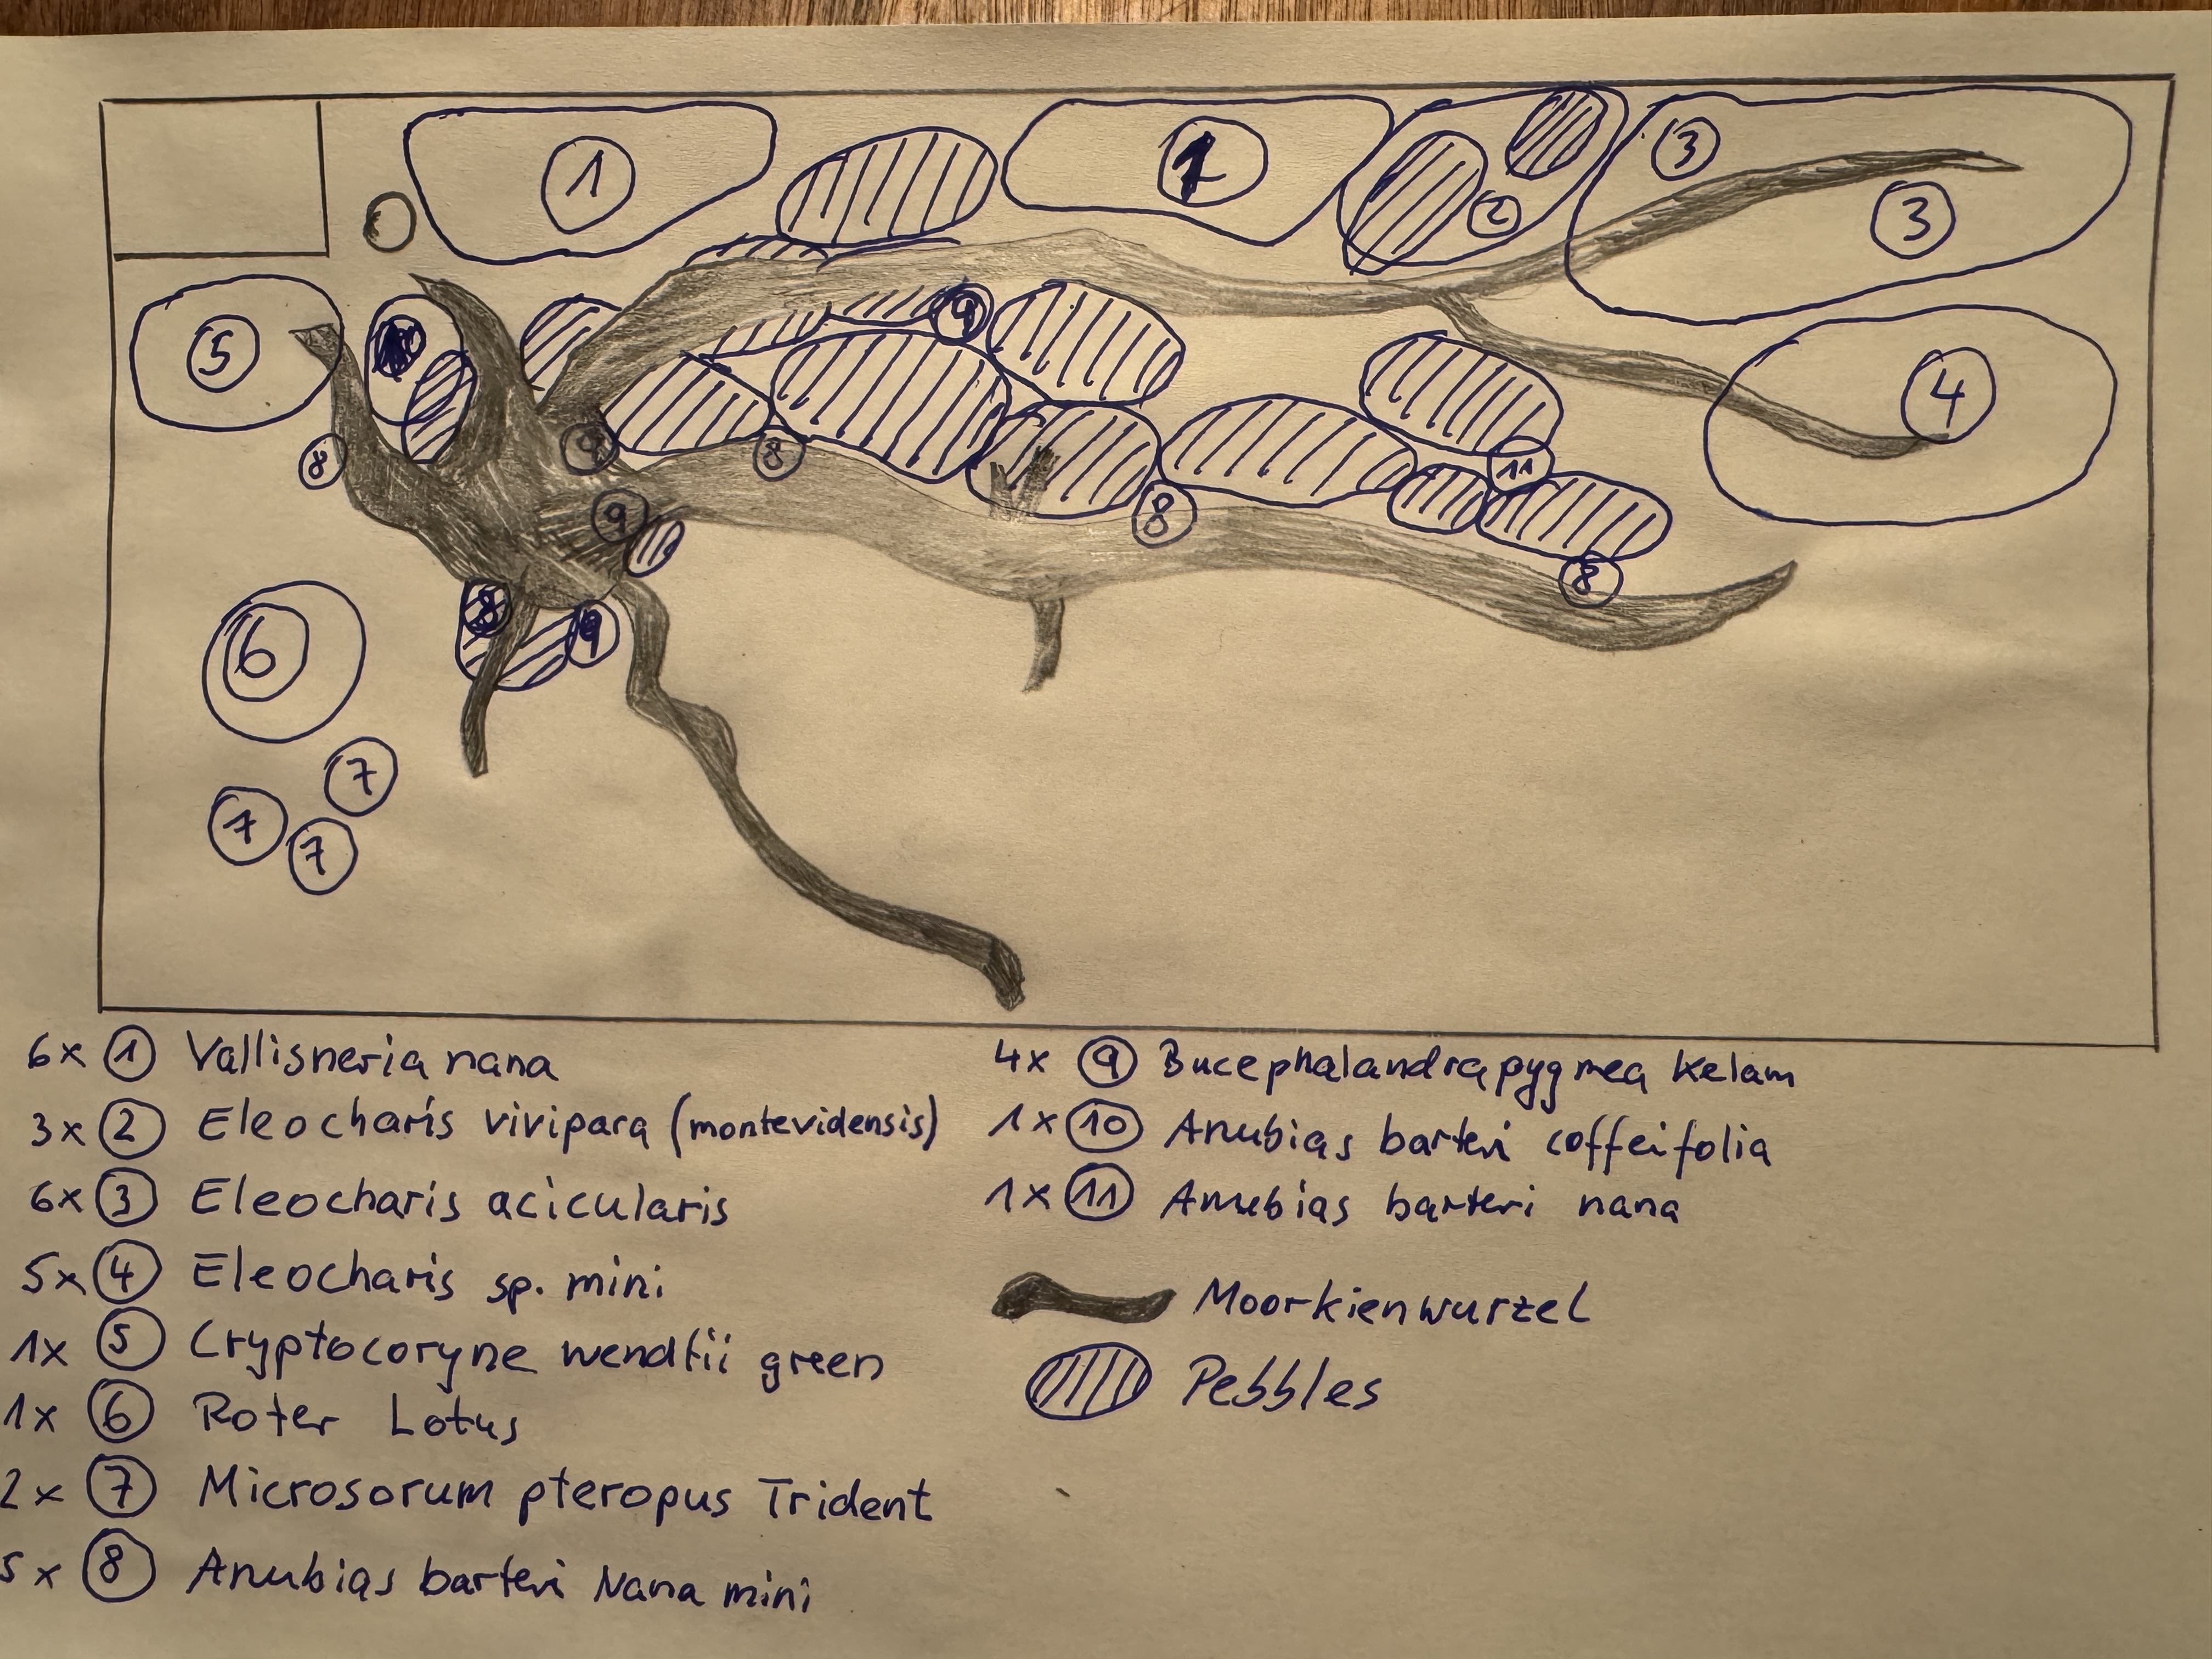 1
1
2
3
3
5
9
4
9
8
8
11
9
8
8
8
9
6
7
7
7
6x 1 Vallisneria nana
3x 2 Eleocharis vivipara (montevidensis)
6x 3 Eleocharis acicularis
5x 4 Eleocharis sp. mini
1x 5 Cryptocoryne wendtii green
1x 6 Roter Lotus
2x 7 Microsorum pteropus Trident
5x 8 Anubias barteri Nana mini
4x 9 Bucephalandra pygmea Kelam
1x 10 Anubias barteri coffeifolia
1x 11 Anubias barteri nana
Moorkienwurzel
Pebbles